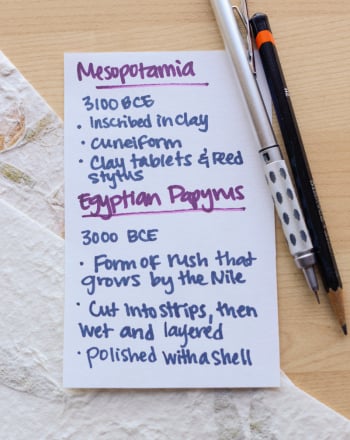 Mesopotamia
3100 BCE
• Inscribed in clay
• cuneiform
• Clay tablets & reed
stylus
Egyptian Papyrus
3000 BCE
• Form of rush that
grows by the Nile
• Cut into strips, then
wet and layered
• polished with a shell